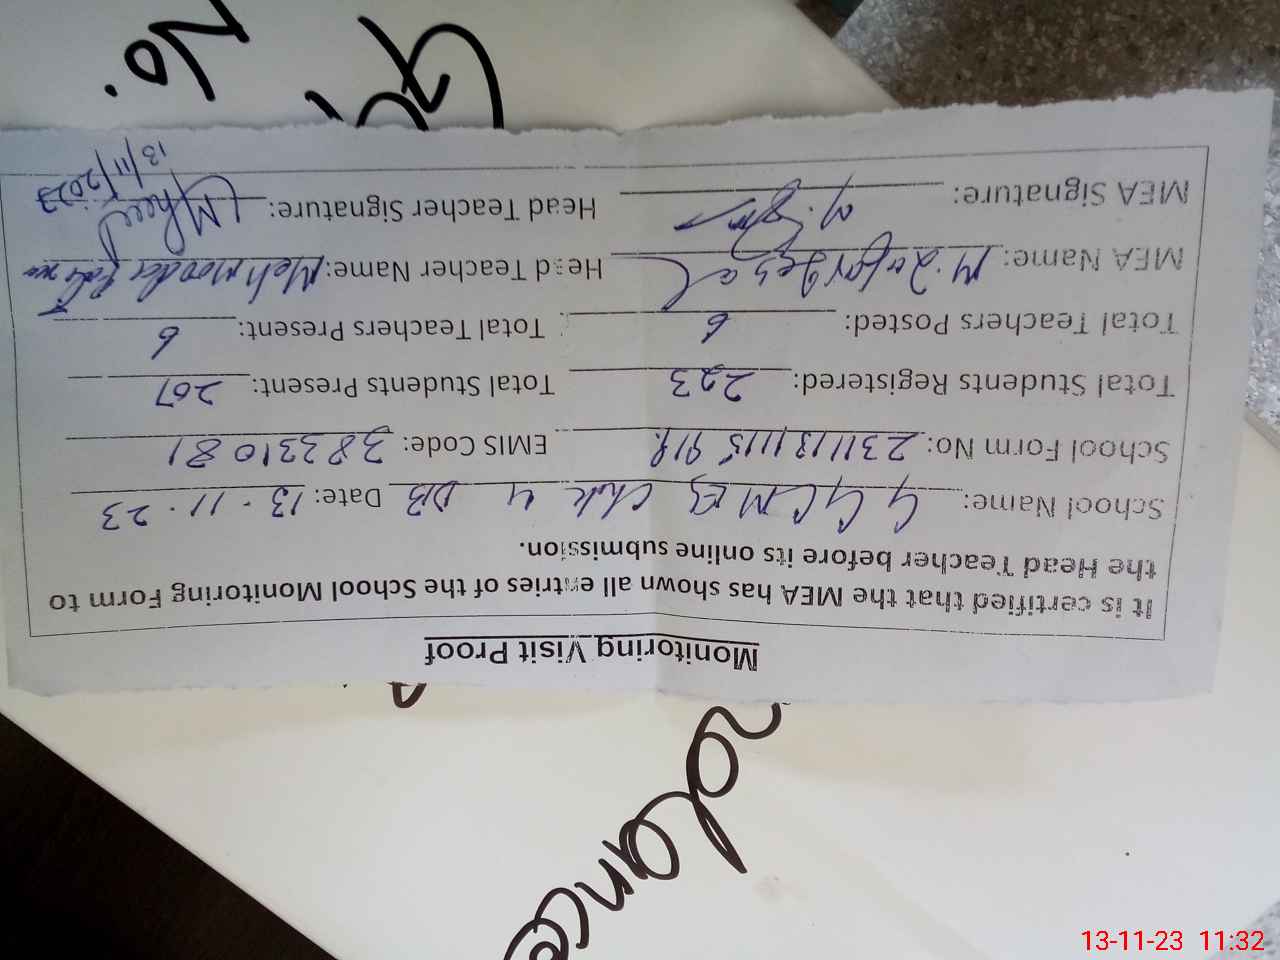 Monitoring Visit Proof
It is certified that the MEA has shown all entries of the School Monitoring Form to
the Head Teacher before its online submission.
School Name: GGCMES Chak 4 DB Date: 13.11.23
School Form No: EMIS Code: 38331081
Total Students Registered: 223 Total Students Present: 207
Total Teachers Posted: 6 Total Teachers Present: 6
MEA Name: M. Zafar Head Teacher Name:
MEA Signature: Head Teacher Signature:
13/11/2023
No.
13-11-23 11:32